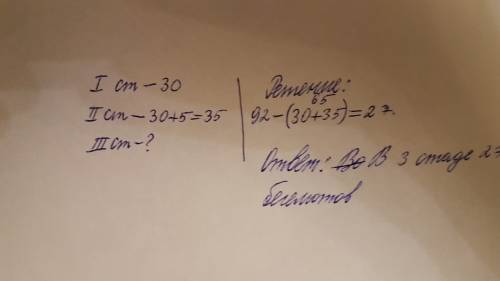 I ст - 30
II ст - 30+5=35
III ст - ?
Решение:
65
92-(30+35)=27.
Ответ: Во В 3 стаде 27
бегемотов